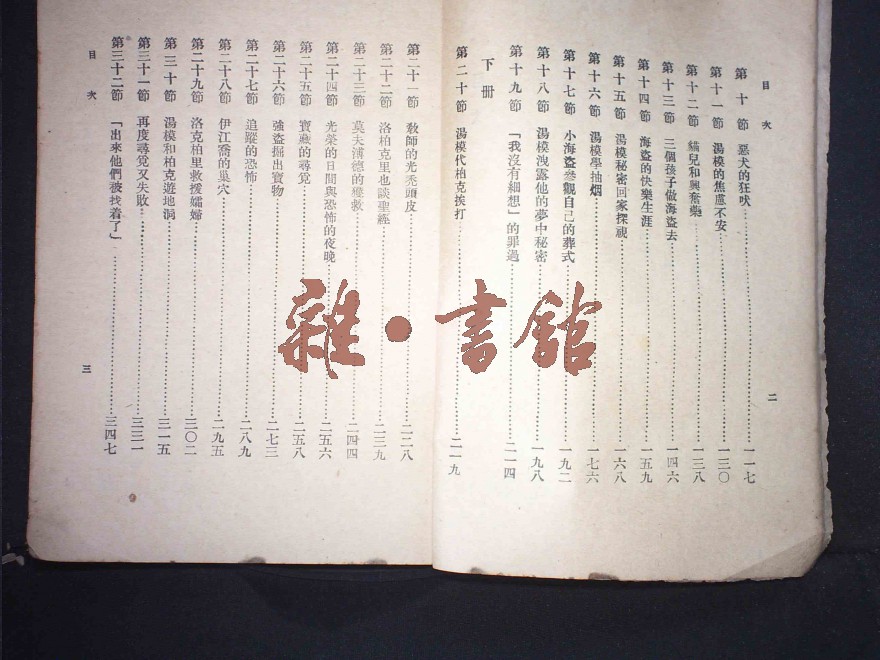 目次
第十節 惡犬的狂吠…………一一七
第十一節 湯模的焦慮不安…………一三〇
第十二節 貓兒和興奮藥…………一三八
第十三節 三個孩子做海盜去…………一四六
第十四節 海盜的快樂生涯…………一五九
第十五節 湯模秘密回家探視…………一六八
第十六節 湯模學抽烟…………一七六
第十七節 小海盜參觀自己的葬式…………一九二
第十八節 湯模洩露他的夢中秘密…………一九八
第十九節 「我沒有細想」的罪過…………二一四
下册
第二十節 湯模代柏克挨打…………二一九
二
目次
第二十一節 教師的光禿頭皮…………二二八
第二十二節 洛柏克里也談聖經…………二三九
第二十三節 莫夫浦德的獲救…………二四四
第二十四節 光榮的日間與恐怖的夜晚…………二五六
第二十五節 寶藏的尋覓…………二五八
第二十六節 強盜掘出寶物…………二七三
第二十七節 追蹤的恐怖…………二八九
第二十八節 伊江喬的巢穴…………二九五
第二十九節 洛克柏里救援孀婦…………三〇二
第三十節 湯模和柏克遊地洞…………三一五
第三十一節 再度尋覓又失敗…………三三一
第三十二節 「出來他們被找着了」…………三四七
三
雜·書館